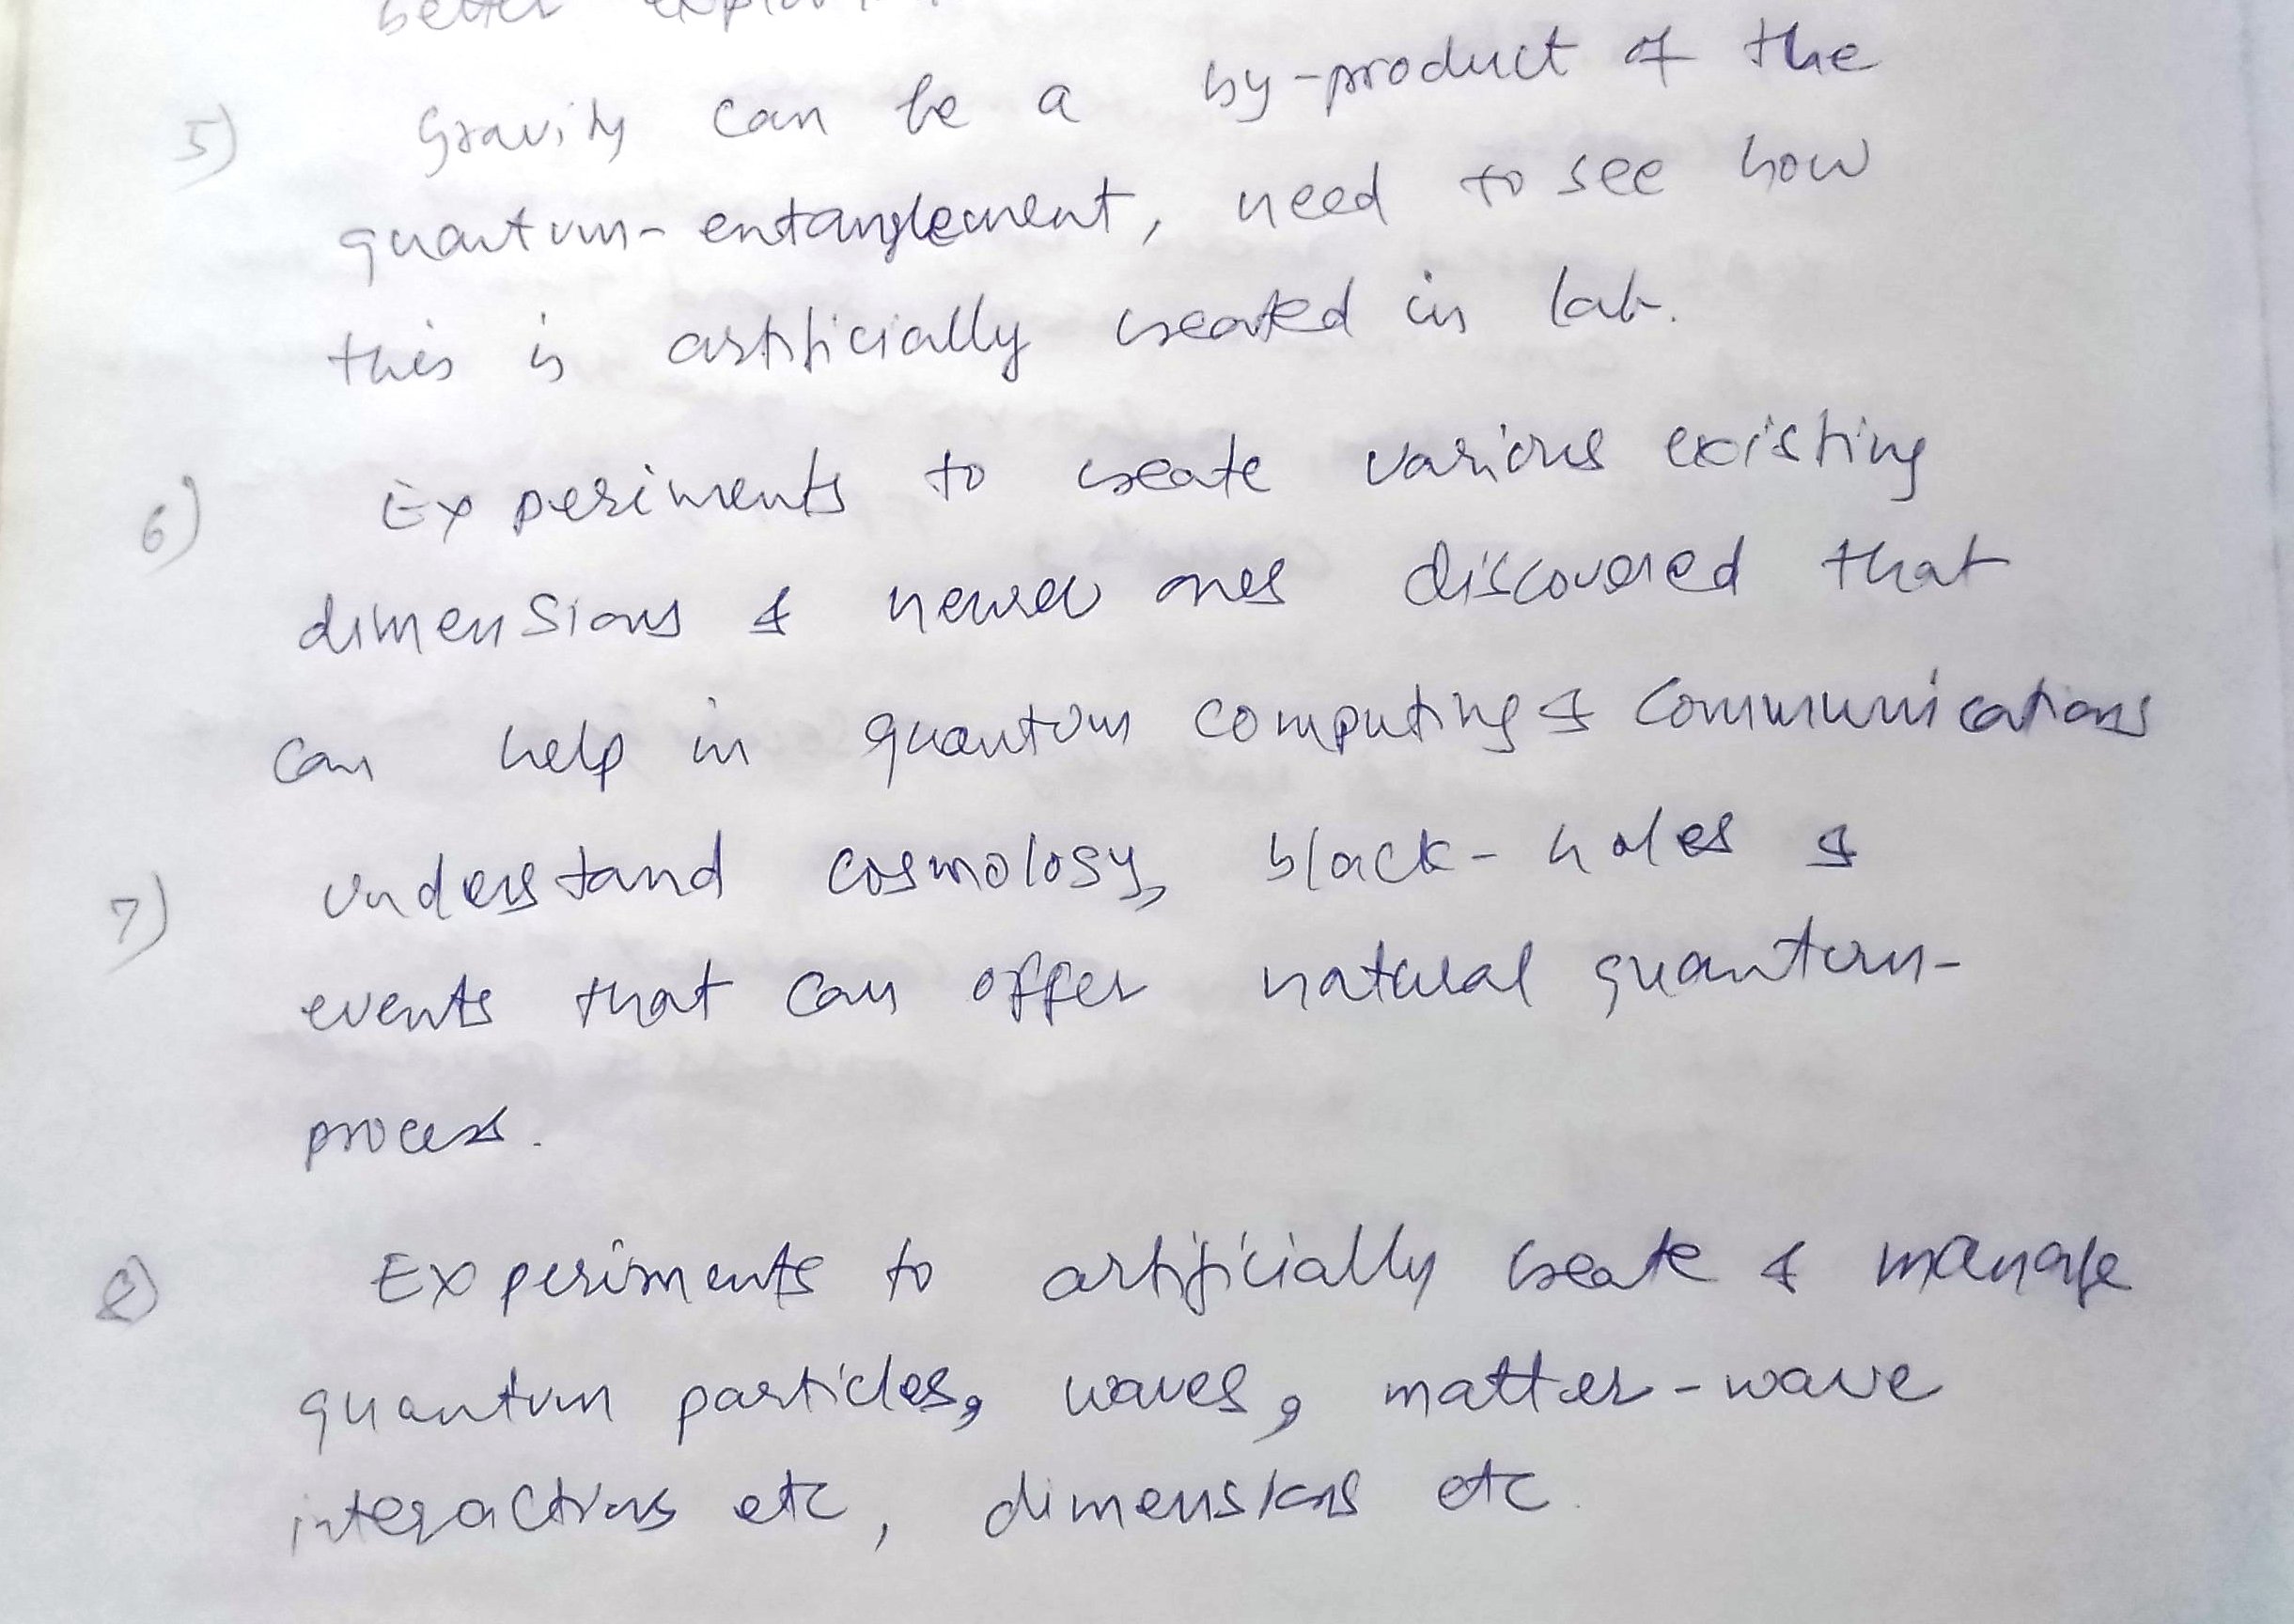 better
5) Gravity can be a by-product of the
quantum-entanglement, need to see how
this is artificially created in lab.
6) Experiments to create various existing
dimensions & newer ones discovered that
can help in quantum computing & communications
7) understand cosmology, black-holes &
events that can offer natural quantum-
process.
8) Experiments to artificially create & manage
quantum particles, waves, matter-wave
interactions etc, dimensions etc.